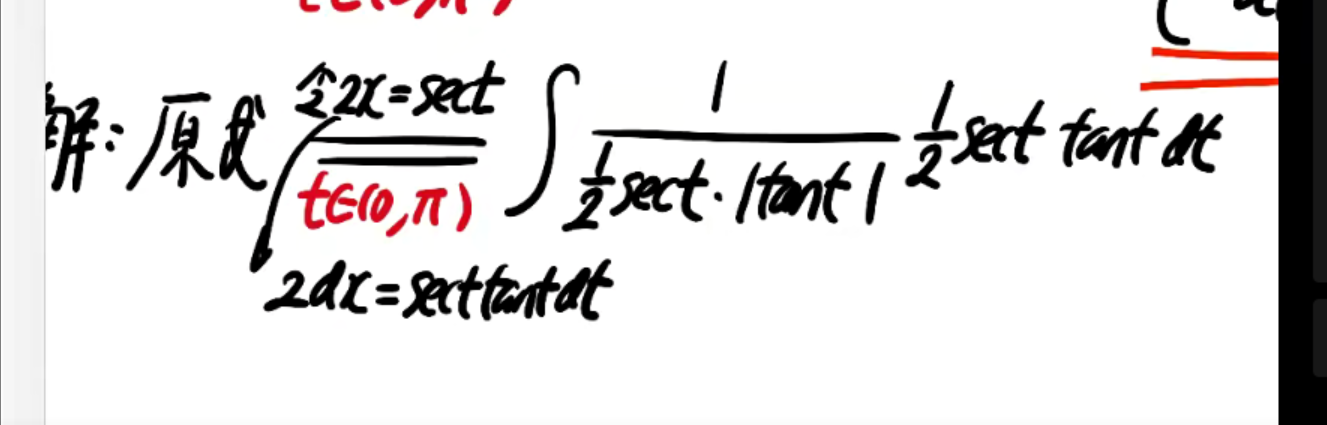 t∈(0,π)
解:原式 令2x=sect ∫ 1/(½sect·|tant|) ½sect tant dt
t∈(0,π)
2dx=sect tant dt